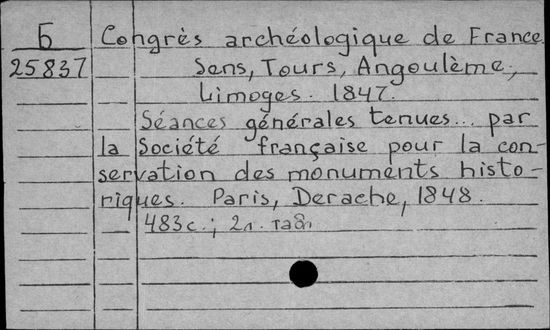 Б Congrès archéologique de France.
25837 Sens, Tours, Angoulème,
Limoges. 1847.
Séances générales tenues... par
la Société française pour la con-
servation des monuments histo-
riques. Paris, Derache, 1848.
483с.; 2л. табл